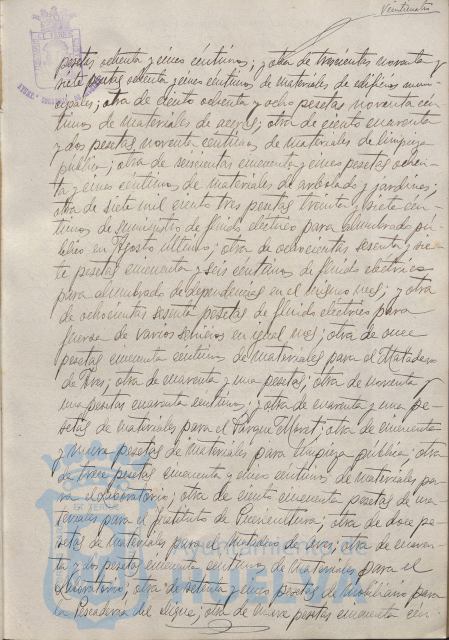 Veinticuatro
pesetas ochenta y cinco céntimos; y otra de trescientas noventa y
siete pesetas ochenta y cinco céntimos de materiales de edificios muni-
cipales; otra de ciento ochenta y ocho pesetas noventa cén-
timos de materiales de aceras; otra de ciento cuarenta
y dos pesetas noventa céntimos de materiales de limpieza
pública; otra de seiscientas cincuenta y cinco pesetas ochen-
ta y cinco céntimos de materiales de arbolado y jardines;
otra de siete mil ciento tres pesetas treinta y siete cén-
timos de suministro de fluido eléctrico para alumbrado pú-
blico en Agosto último; otra de ochocientas sesenta y sie-
te pesetas cincuenta y seis céntimos de fluido eléctrico
para alumbrado de dependencias en el mismo mes; y otra
de ochocientas sesenta pesetas de fluido eléctrico para
fuerza de varios servicios en igual mes; otra de once
pesetas cincuenta céntimos de materiales para el Matadero
de Aves; otra de cuarenta y una pesetas; otra de noventa y
una pesetas cuarenta céntimos; y otra de cuarenta y una pe-
setas de materiales para el Parque Moret; otra de cincuenta
y nueve pesetas de materiales para limpieza pública; otra
de trece pesetas cincuenta y cinco céntimos de materiales pa-
ra el Laboratorio; otra de ciento cincuenta pesetas de ma-
teriales para el Instituto de Puericultura; otra de doce pe-
setas de materiales para el Matadero de Aves; otra de cuaren-
ta y dos pesetas cincuenta céntimos de materiales para el
Laboratorio; otra de setenta y cinco pesetas de mobiliario para
la Pescadería del Dique; otra de nueve pesetas cincuenta cén-
Ayuntamiento de
HUELVA